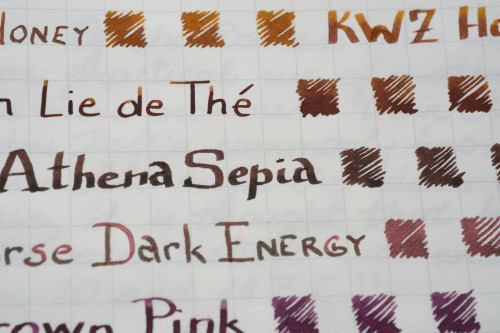 Honey KWZ Ho
n Lie de Thé
Athena Sepia
erse Dark Energy
rown Pink